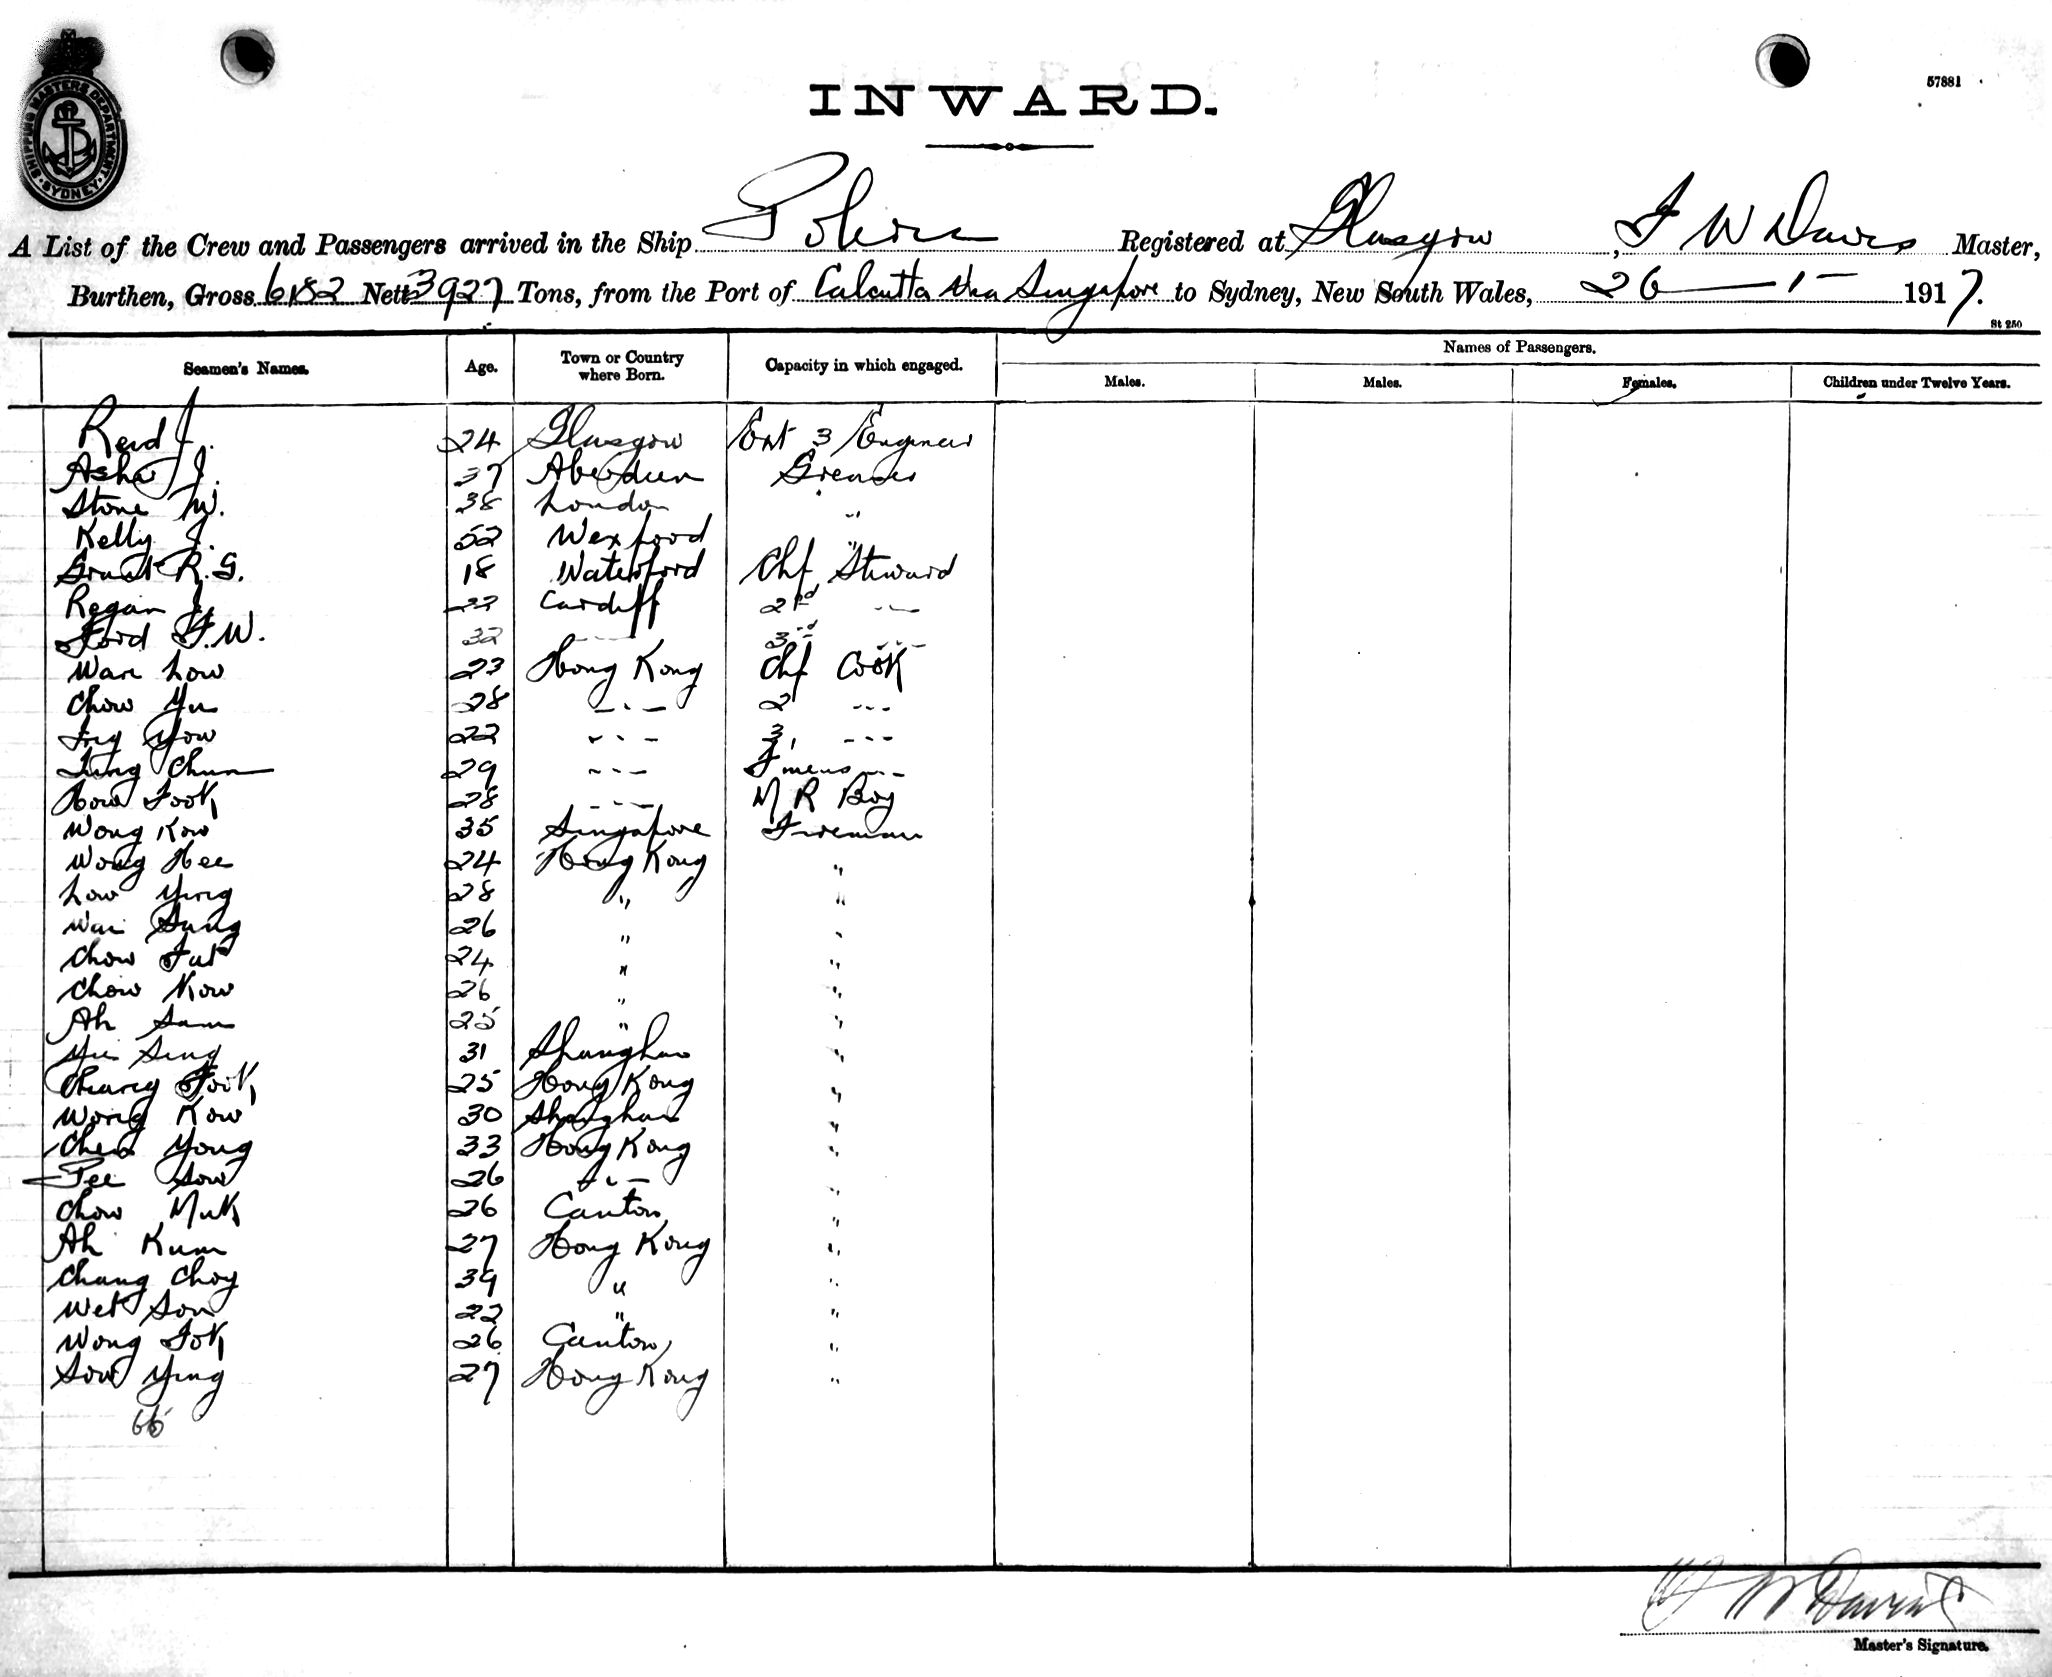 SHIPPING MASTERS DEPARTMENT
SYDNEY
57881
INWARD.
A List of the Crew and Passengers arrived in the Ship Registered at Glasgow, F W Davis Master,
Burthen, Gross 6182 Nett 3927 Tons, from the Port of Calcutta via Singapore to Sydney, New South Wales, 26 — 1 — 1917.
St 250
Seamen's Names. Age. Town or Country where Born. Capacity in which engaged. Names of Passengers.
Males. Males. Females. Children under Twelve Years.
Reid J. 24 Glasgow Ext 3 Engineer
J. 37 Aberdeen Greaser
Stone W. 38 London "
Kelly J. 52 Wexford "
Grant R. G. 18 Waterford Chf Steward
Regan J. 22 Cardiff 2nd - - -
Ford F. W. 32 - - - 3rd - - -
Wan Low 23 Hong Kong Chf Cook
Chow Yu 28 - - - 2 - - -
Yow 22 - - - 3, - - -
Tung Chun 29 - - - Fmens - - -
How Fook 28 - - - M R Boy
Wong Kow 35 Singapore Fireman
Wong Hee 24 Hong Kong "
Low Ying 28 " "
Wai Sung 26 " "
Chow Fat 24 " "
Chow Kow 26 " "
Ah Sam 25 " "
Yu Sing 31 Shanghai "
Chung Fook 25 Hong Kong "
Wong Kow 30 Shanghai "
Chew Yong 33 Hong Kong "
Tee Sow 26 - - - "
Chow Muk 26 Canton "
Ah Kum 27 Hong Kong "
Chang Choy 39 " "
Wet Son 22 " "
Wong Fok 26 Canton "
Sow Ying 27 Hong Kong "
66
F W Davis
Master's Signature.